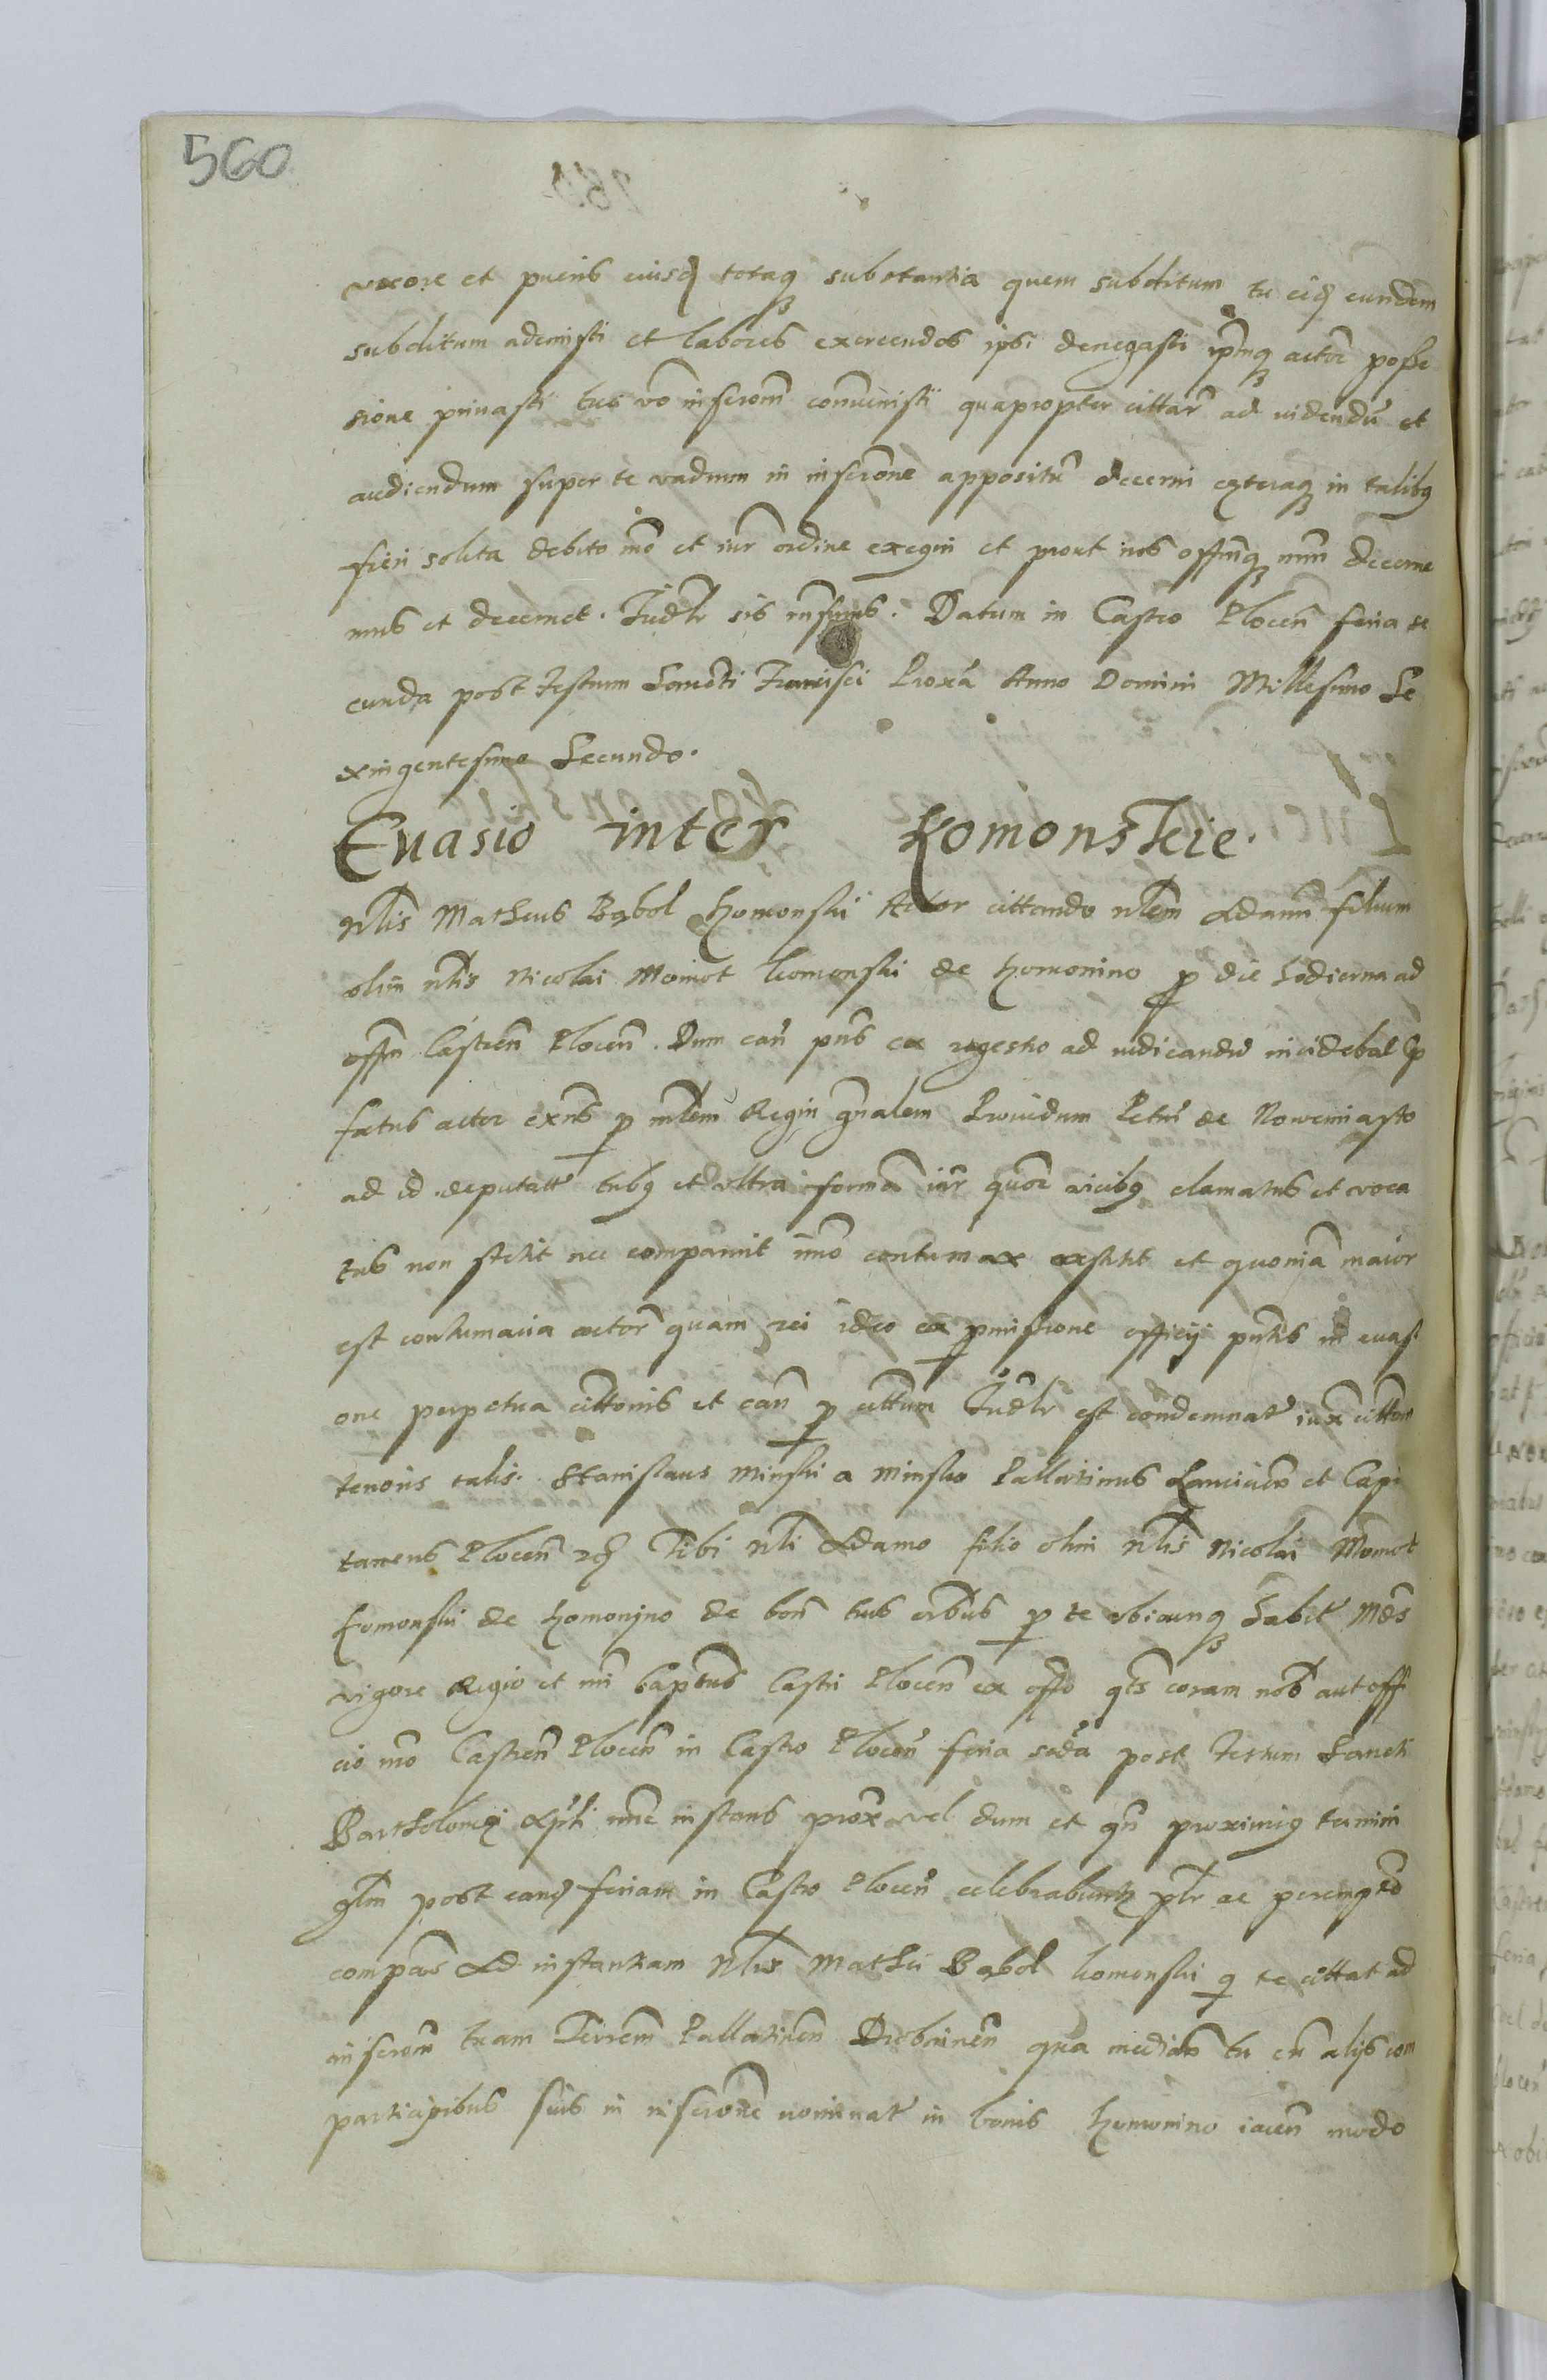 560
uxore et pueris eiusq totaq substantia quem subditum tu eidq eundem
subditum ademisti et labores exercendos ipsi denegasti ipmq actore posse
sione privasti tuo vo inscrom convenisti quapropter cittaris ad videndu et
audiendum super te vadium in inscrone appositu decerni cęteraq in talibq
fieri solita debito mo et iur ordine exequi et prout nos offmq nrm decerne
mus et decernet. Judlr sis rnsurus. Datum in Castro Plocen feria se
cunda post Festum Sancti Francisci Proxa Anno Domini Millesimo Se
exingentesimo Secundo.
Evasio inter Komonskie.
Nlis Matheus Babol Komonski Actor cittando nlem Adamu filium
olim nlis Nicolai Momot Komonski de Komonino p die hodierna ad
offm Castren Plocen. Dum can pns ex regestro ad iudicandu incidebat p
fatus actor exns p mlem Regiu gnalem Providum Petru de Nowemiasto
ad id deputatu tribq et ultra forma iur quor vicibq clamatus et voca
tus non stetit nec comparuit imo contumax exstitit et quonia maior
est contumacia actor quam rei ideo ex pmissione officij pntis in evasi
one perpetua cittonis et can p cittum Judlr est condemnat iux citton
tenoris talis. Stanislaus Minski a Minsko Pallatinus Lancicien et Capi
taneus Plocen Tibi nli Adamo filio olim nlis Nicolai Momot
Komonski de Komonino de bon tuis oibus p te ubicunq habit Mds
vigore Regio et mi Captus Castri Plocen ex offo qts coram nob aut offi
cio nro Castren Plocen in Castro Plocen feria scda post Festum Sancti
Bartholomei Apli nunc instans prox vel dum et qn proximiq termini
glm post eandq feriam in Castro Plocen celebrabuntr plr ac peremptoe
compars Ad instantiam Nlis Mathei Babol Komonski q te cittat ad
inscrom tuam Terrem Pallatinen Drobninen qua median tu cu alijs com
participibus suis in inscrone nominat in bonis Komonino iacen modo